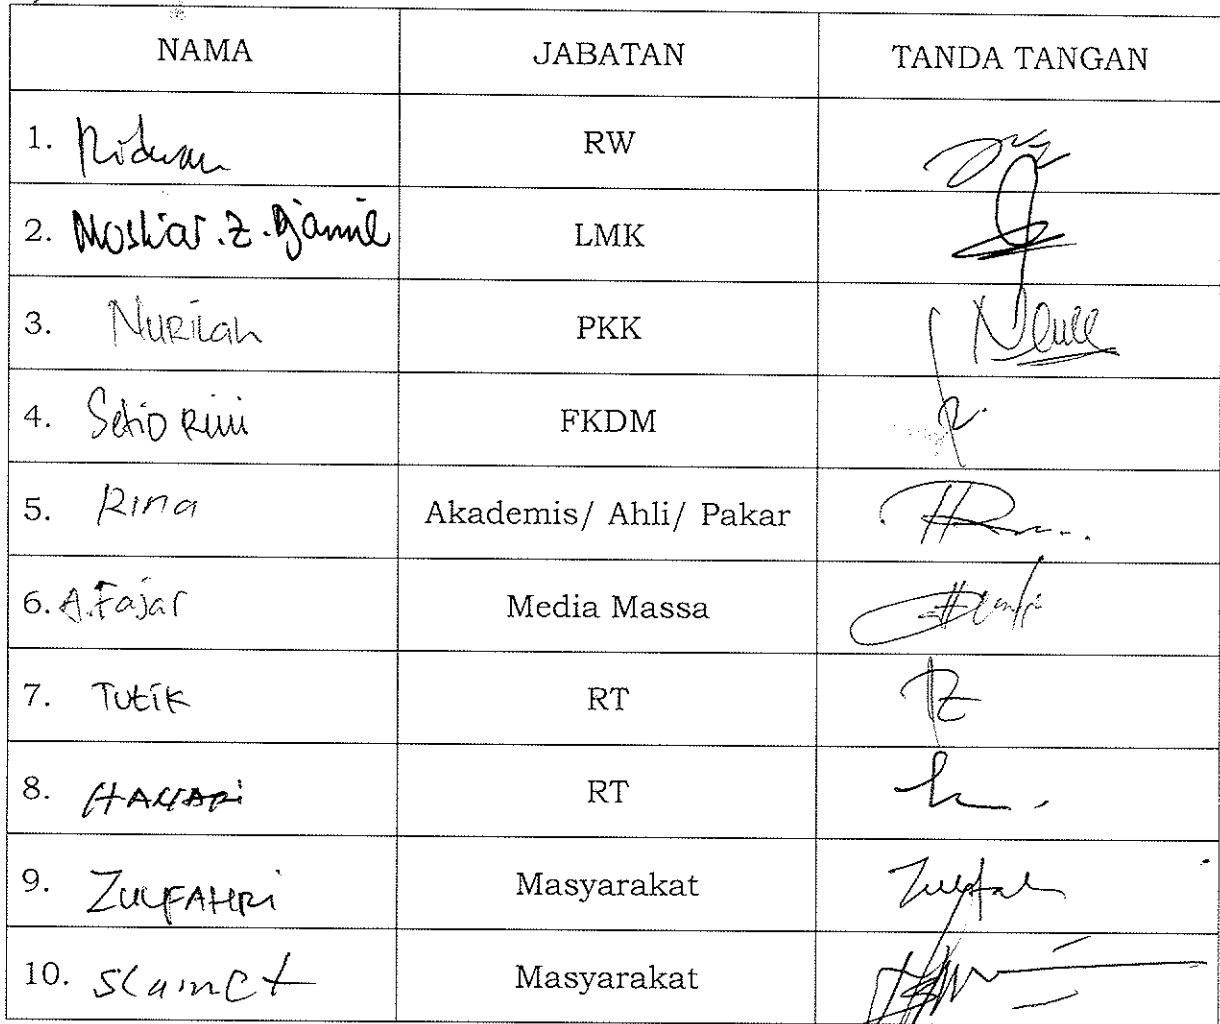 NAMA JABATAN TANDA TANGAN
1. Ridwan RW
2. Z. Djamil LMK
3. Nurilah PKK
4. Setio Rini FKDM
5. Rina Akademis/ Ahli/ Pakar
6. A. Fajar Media Massa
7. Tutik RT
8. RT
9. ZULFAHRI Masyarakat Zulfah
10. Slamet Masyarakat